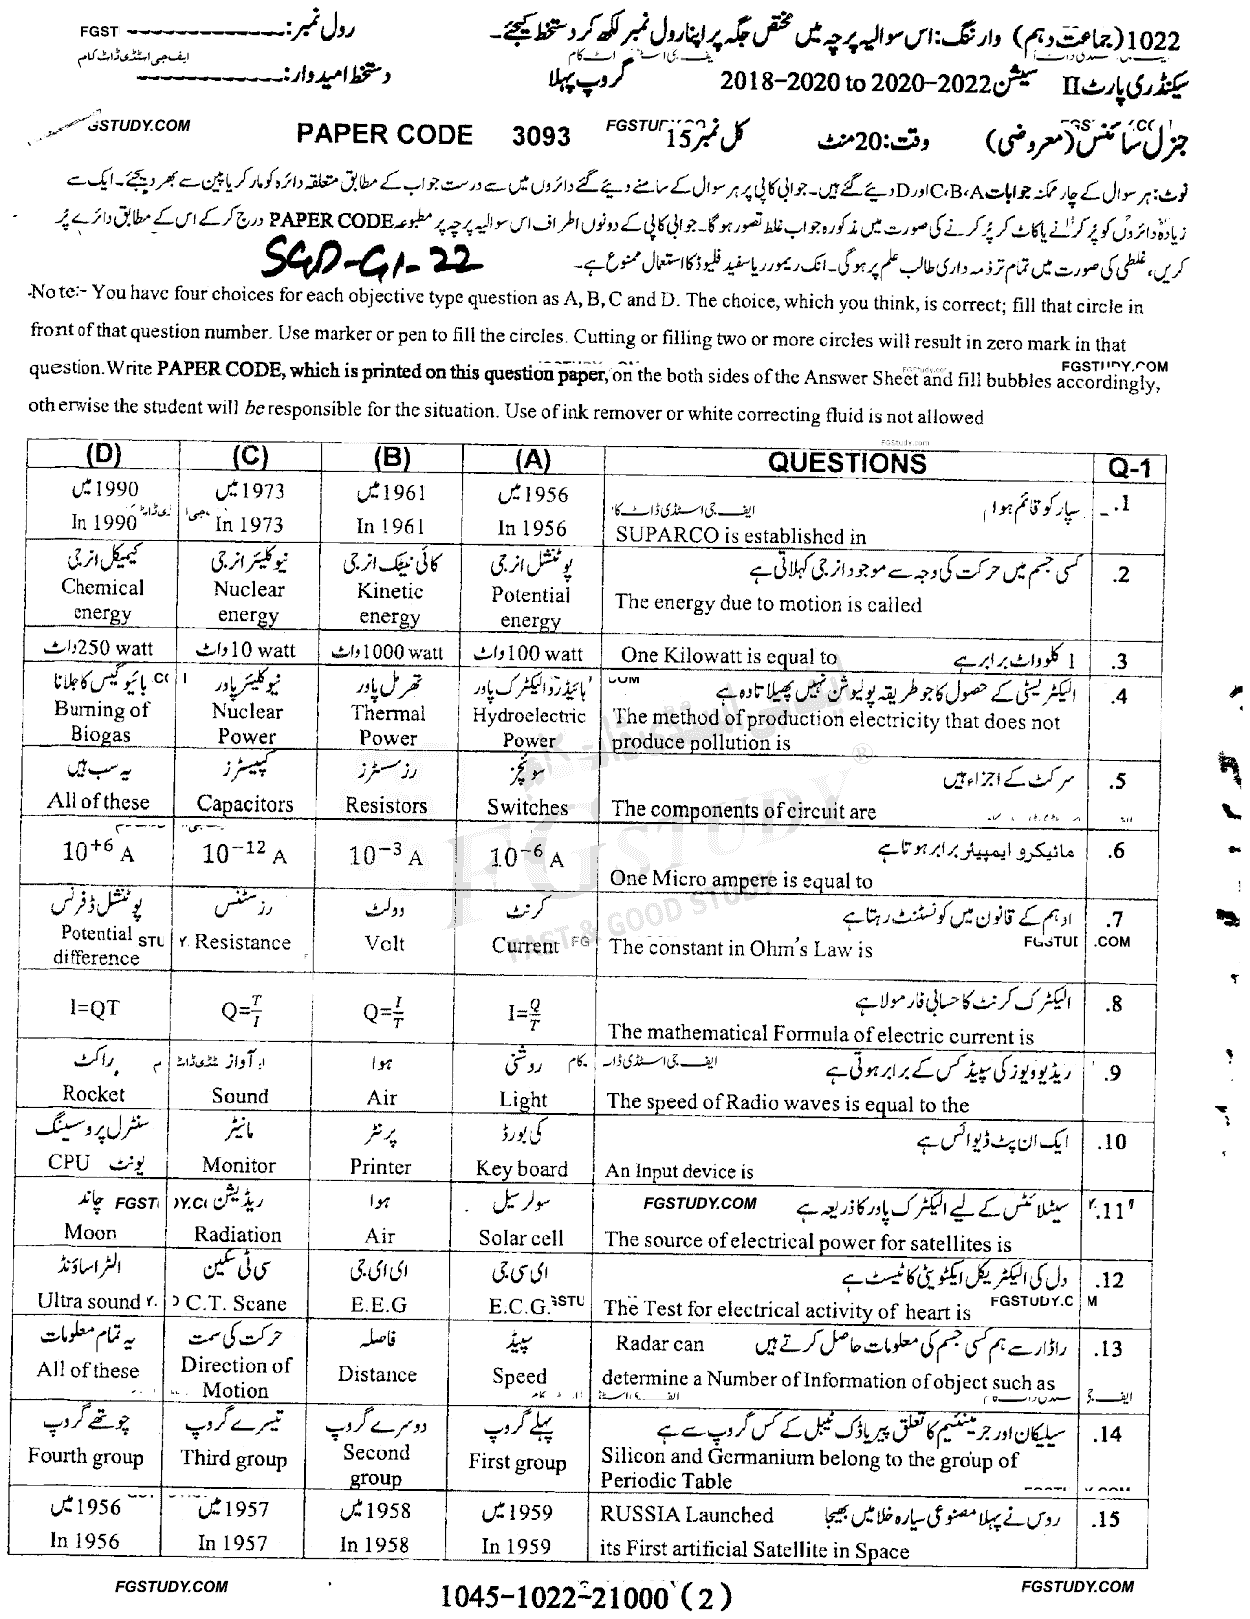 1022 (جماعت دہم) وارننگ: اس سوالیہ پرچہ میں مختص جگہ پر اپنا رول نمبر لکھ کر دستخط کیجئے۔ رول نمبر: ---------------- FGST
ایف جی اسٹڈی ڈاٹ کام
سیکنڈری پارٹ II سیشن 2018-2020 to 2020-2022 گروپ پہلا دستخط امیدوار: ----------------
جنرل سائنس (معروضی) وقت: 20 منٹ کل نمبر 15 PAPER CODE 3093 GSTUDY.COM
نوٹ: ہر سوال کے چار ممکنہ جوابات C، B، A اور D دیئے گئے ہیں۔ جوابی کاپی پر ہر سوال کے سامنے دیئے گئے دائروں میں سے درست جواب کے مطابق متعلقہ دائرہ کو مارکر یا پین سے بھر دیجئے۔ ایک سے
زیادہ دائروں کو پُر کرنے یا کاٹ کر پُر کرنے کی صورت میں مذکورہ جواب غلط تصور ہوگا۔ جوابی کاپی کے دونوں اطراف اس سوالیہ پرچہ پر مطبوعہ PAPER CODE درج کر کے اس کے مطابق دائرے پُر
کریں، غلطی کی صورت میں تمام تر ذمہ داری طالب علم پر ہوگی۔ انک ریمور یا سفید فلیوڈ کا استعمال ممنوع ہے۔ SGD-G1-22
Note:- You have four choices for each objective type question as A, B, C and D. The choice, which you think, is correct; fill that circle in
front of that question number. Use marker or pen to fill the circles. Cutting or filling two or more circles will result in zero mark in that
question. Write PAPER CODE, which is printed on this question paper, on the both sides of the Answer Sheet and fill bubbles accordingly,
FGSTUDY.COM
otherwise the student will be responsible for the situation. Use of ink remover or white correcting fluid is not allowed
FGStudy.com
(D) (C) (B) (A) QUESTIONS Q-1
1990 میں 1973 میں 1961 میں 1956 میں سپارکو قائم ہوا .1
In 1990 In 1973 In 1961 In 1956 SUPARCO is established in
کیمیکل انرجی نیوکلیئر انرجی کائی نیٹک انرجی پوٹنشل انرجی کسی جسم میں حرکت کی وجہ سے موجود انرجی کہلاتی ہے .2
Chemical Nuclear Kinetic Potential The energy due to motion is called
energy energy energy energy
250 watt واٹ 10 watt واٹ 1000 watt واٹ 100 watt واٹ One Kilowatt is equal to 1 کلو واٹ برابر ہے .3
بائیو گیس کا جلانا نیوکلیئر پاور تھرمل پاور ہائیڈرو الیکٹرک پاور الیکٹریسٹی کے حصول کا جو طریقہ پولیوشن نہیں پھیلاتا وہ ہے .4
Burning of Nuclear Thermal Hydroelectric The method of production electricity that does not
Biogas Power Power Power produce pollution is
یہ سب ہیں کپیسٹرز رزسٹرز سوئچز سرکٹ کے اجزاء ہیں .5
All of these Capacitors Resistors Switches The components of circuit are
10+6 A 10−12 A 10−3 A 10−6 A مائیکرو ایمپیئر برابر ہوتا ہے .6
One Micro ampere is equal to
پوٹنشل ڈفرنس رزسٹنس وولٹ کرنٹ اوہم کے قانون میں کونسٹنٹ رہتا ہے .7
Potential Resistance Volt Current The constant in Ohm's Law is FGSTUDY.COM
difference
I=QT Q=T/I Q=I/T I=Q/T الیکٹرک کرنٹ کا حسابی فارمولا ہے .8
The mathematical Formula of electric current is
راکٹ آواز ہوا روشنی ریڈیو ویوز کی سپیڈ کس کے برابر ہوتی ہے .9
Rocket Sound Air Light The speed of Radio waves is equal to the
سنٹرل پروسیسنگ مانیٹر پرنٹر کی بورڈ ایک ان پٹ ڈیوائس ہے .10
CPU یونٹ Monitor Printer Key board An Input device is
چاند ریڈیشن ہوا سولر سیل FGSTUDY.COM سیٹلائٹس کے لیے الیکٹرک پاور کا ذریعہ ہے .11
Moon Radiation Air Solar cell The source of electrical power for satellites is
الٹراساؤنڈ سی ٹی سکین ای ای جی ای سی جی دل کی الیکٹریکل ایکٹویٹی کا ٹیسٹ ہے .12
Ultra sound C.T. Scane E.E.G E.C.G. The Test for electrical activity of heart is FGSTUDY.C M
یہ تمام معلومات حرکت کی سمت فاصلہ سپیڈ Radar can راڈار سے ہم کسی جسم کی معلومات حاصل کرتے ہیں .13
All of these Direction of Distance Speed determine a Number of Information of object such as
Motion
چوتھے گروپ تیسرے گروپ دوسرے گروپ پہلے گروپ سیلیکان اور جرمینیم کا تعلق پیریاڈک ٹیبل کے کس گروپ سے ہے .14
Fourth group Third group Second First group Silicon and Germanium belong to the group of
group Periodic Table
1956 میں 1957 میں 1958 میں 1959 میں RUSSIA Launched روس نے پہلا مصنوعی سیارہ خلا میں بھیجا .15
In 1956 In 1957 In 1958 In 1959 its First artificial Satellite in Space
FGSTUDY.COM 1045-1022-21000 (2) FGSTUDY.COM
FGSTUDY
FAST & GOOD STUDY